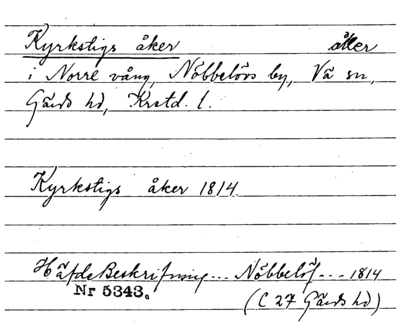 Kyrkstigs åker åker
i Norre vång, Nöbbelövs by, Vä sn,
Gärds hd, Krstd. l.
Kyrkstigs åker 1814.
Häfde Beskrifning... Nöbbelöf... 1814
Nr 5343. (C 27 Gärds hd)